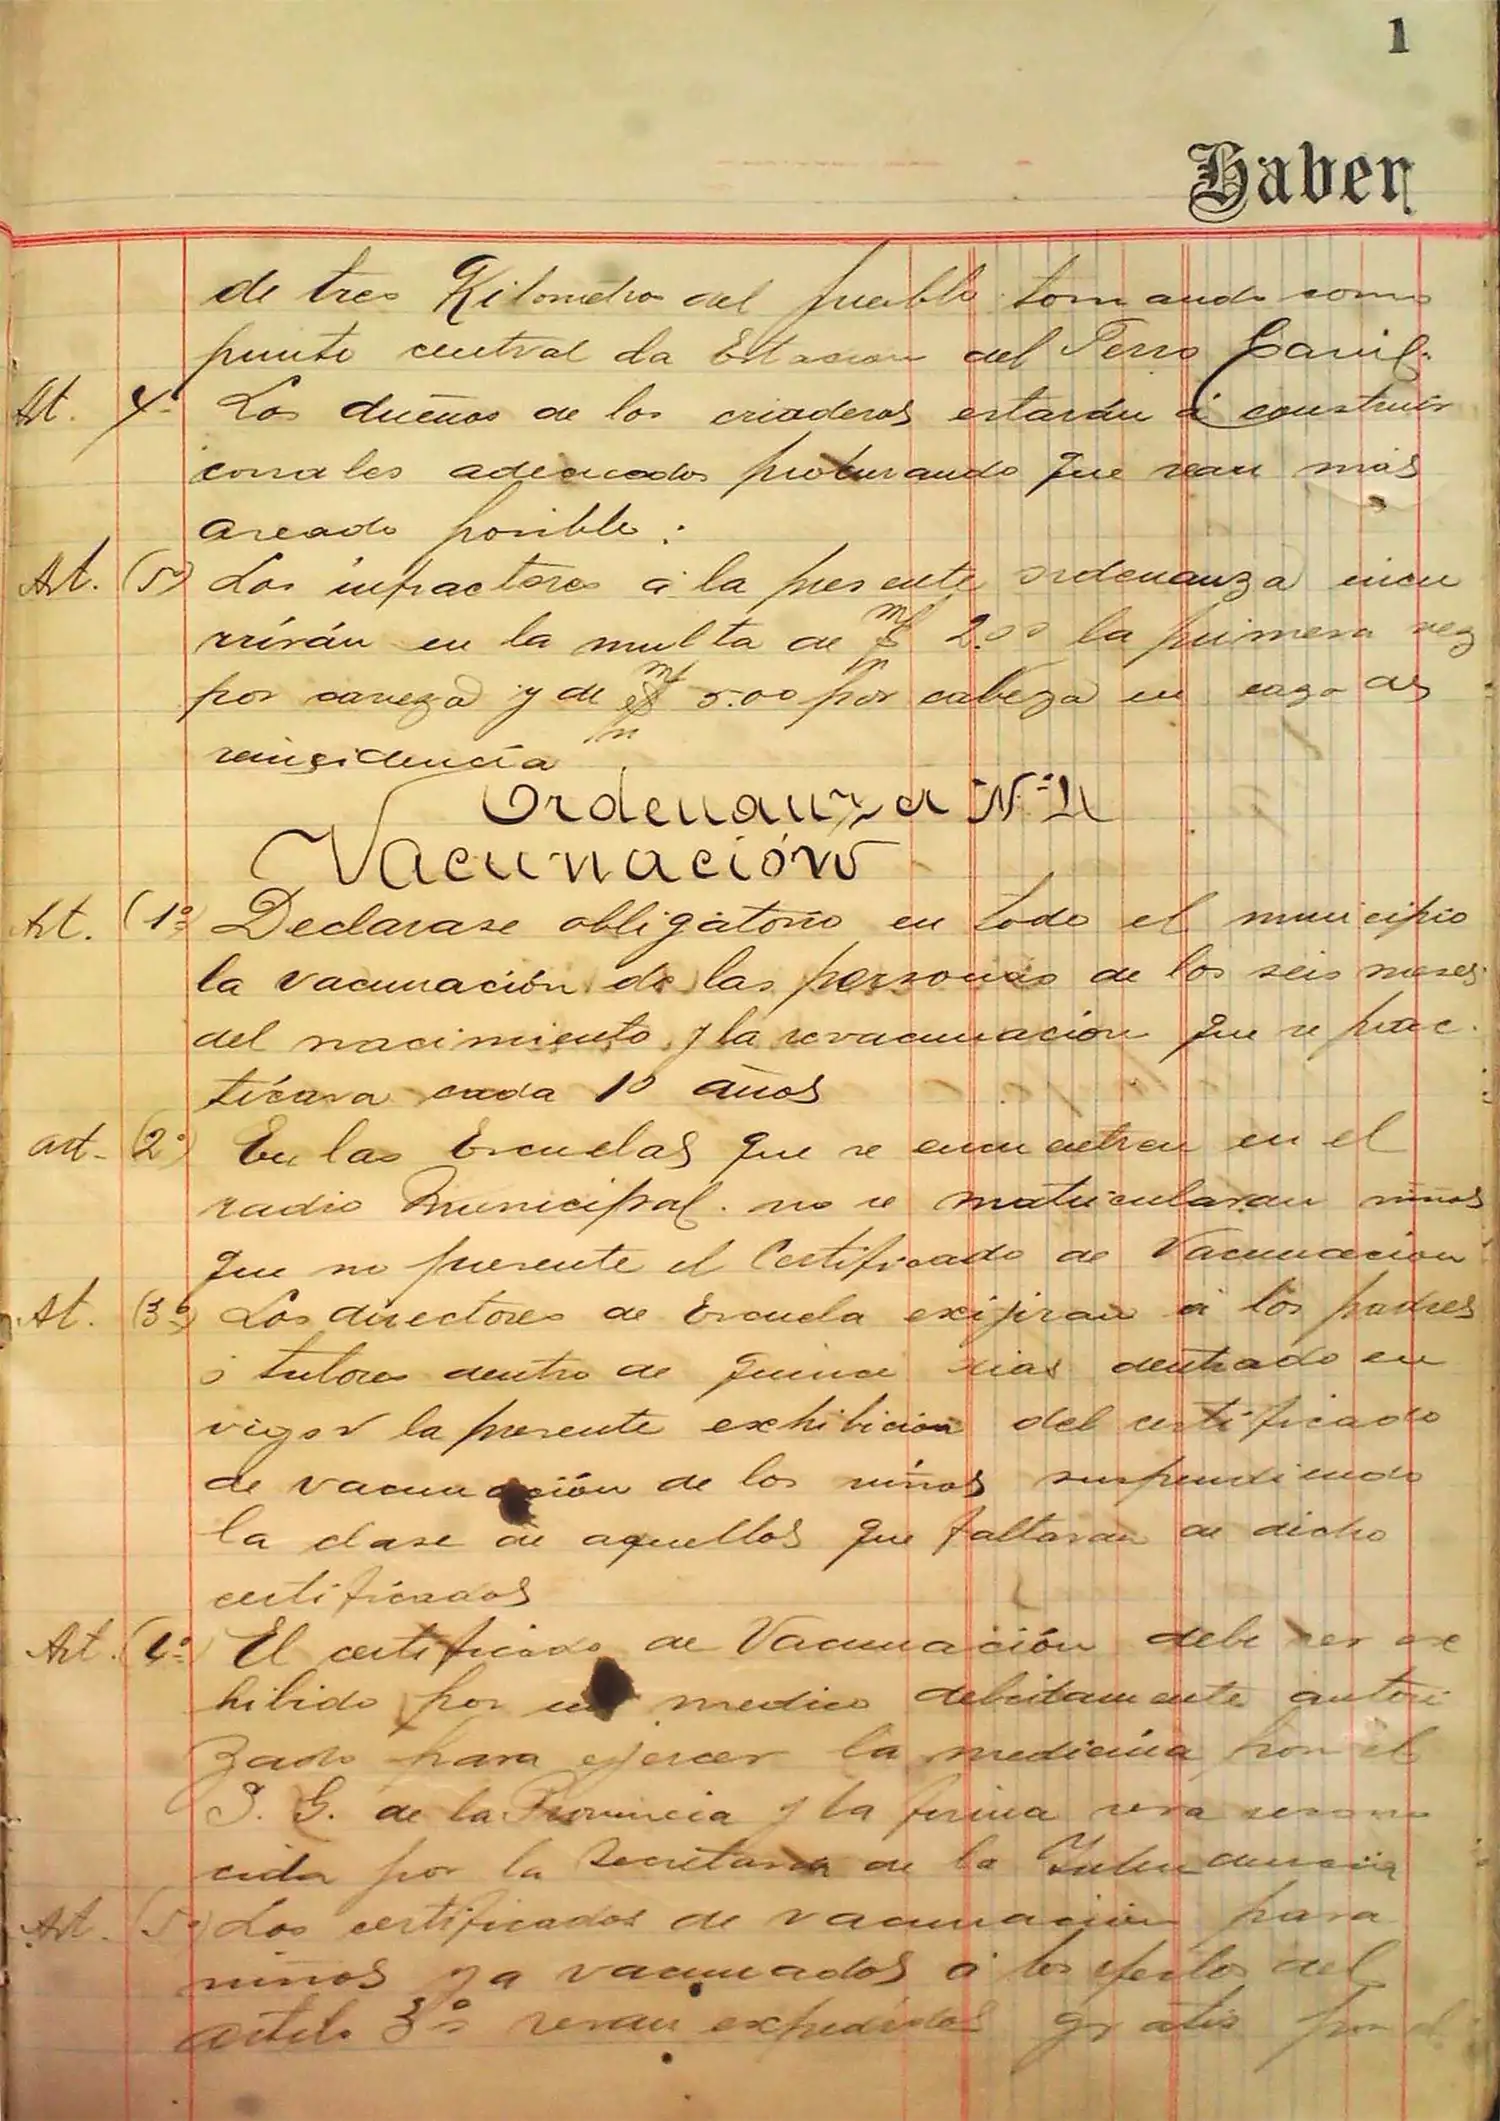 1
Haber
de tres Kilometros del pueblo tomando como
punto central la Estacion del Ferro Carril.
Art. 4º Los dueños de los criaderos estarán á construir
corrales adecuados procurando que sean mas
areado posible.
Art. (5º) Los infractores á la presente ordenanza incu
rrirán en la multa de $ m/n 2.00 la primera vez
por caveza y de $ m/n 5.00 por cabeza en cazo de
reinsidencia
Ordenanza Nº
Vacunación
Art. (1º) Declarase obligatorio en todo el municipio
la vacunación de las personas de los seis meses
del nacimiento y la revacunación que se prac
ticara cada 10 años
art. (2º) En las Escuelas que se encuentren en el
radio Municipal. no se matricularan niños
que no presente el Certificado de Vacunacion
Art. (3º) Los directores de Escuela exijiran á los padres
ó tutores dentro de quince dias dentrado en
vigor la presente exhibición del certificado
de vacunación de los niños suspendiendo
la clase de aquellos que faltaran de dicho
certificados
Art. (4º El certificado de Vacunación debe ser exe
hibido por un medico debidamente autori
zado para ejercer la medicina por el
S. G. de la Provincia y la firma sera recono
cida por la Secretaria de la Intendencia
Art. (5º) Los certificados de vacunacion para
niños ya vacunados á los efectos del
artculo 3º seran expedidos gratis por el